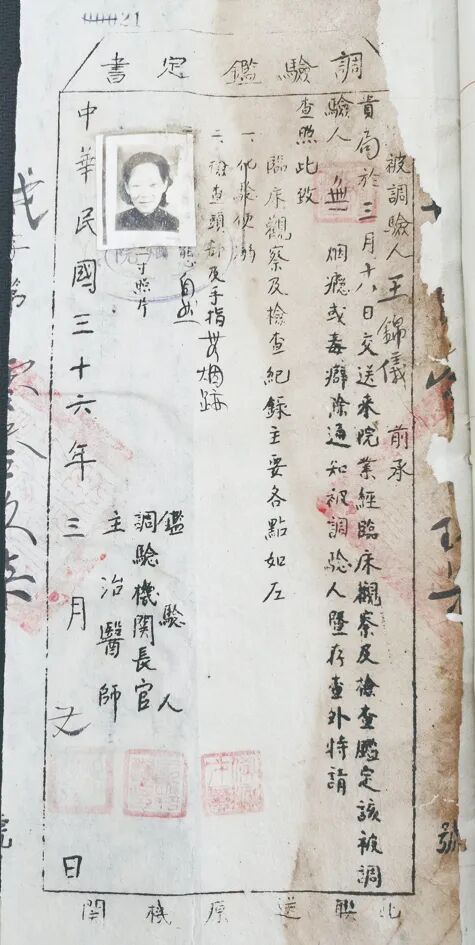 21
調驗鑑定書
被調驗人 王錦儀 前承
貴局於三月十八日交送來院業經臨床觀察及檢查鑑定該被調
驗人 無 烟癮或毒癖除通知被調驗人暨存查外特請
查照此致
臨床觀察及檢查紀錄主要各點如左
一、化驗便溺
二、檢查頭部及手指無烟跡
態自然
二寸照片
鑑驗人
調驗機關長官
主治醫師
中華民國三十六年三月 日
此聯送原機關
號